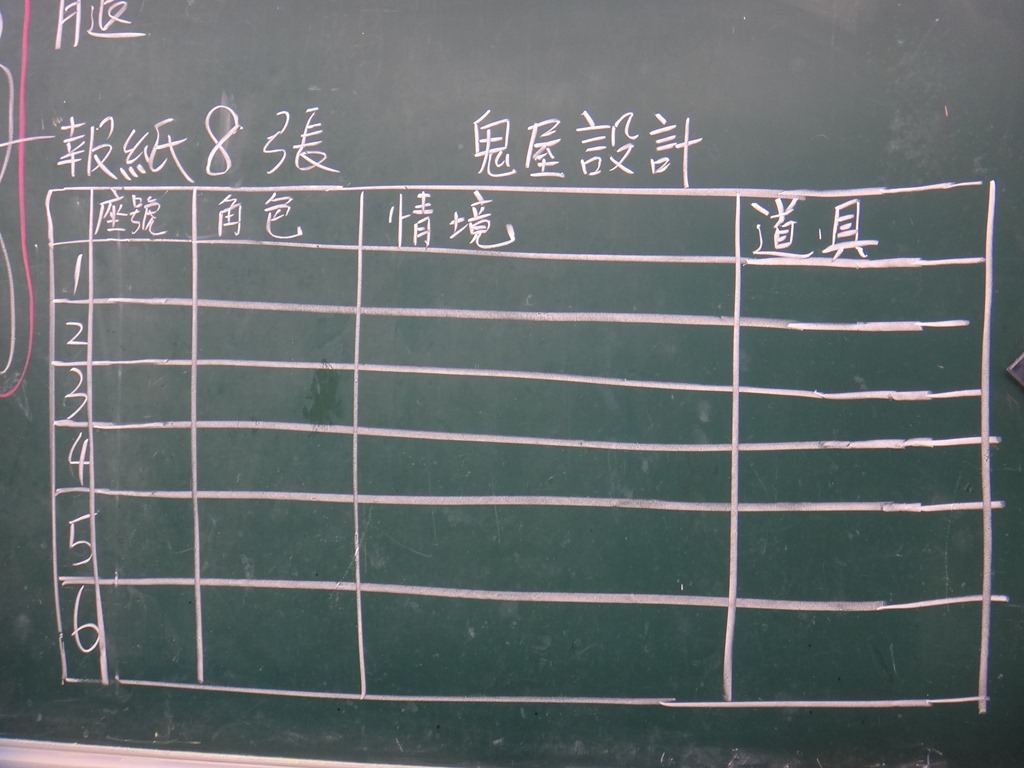 腿
報紙8張 鬼屋設計
座號 角色 情境 道具
1
2
3
4
5
6